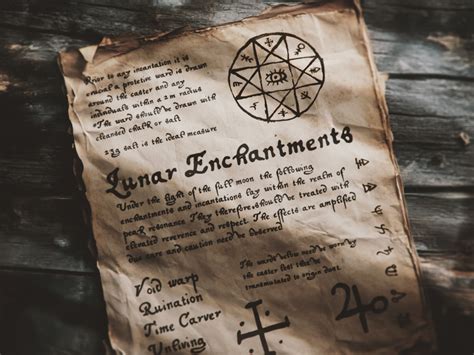 Prior to any incantation it is
crucial a protetive ward is drawn
around the caster and any
individuals within a 2m radius
The ward should be drawn with
cleansed chalk or salt
23g salt is the ideal measure
Lunar Enchantments
Under the light of the full moon the following
enchantments and incantations lay within the realm of
peak resonance They therefore should be treated with
elevated reverence and respect The effects are amplified
due care and caution need be observed
The wards below need be worn by
the caster lest they be
transmuted to origin dust
Void warp
Ruination
Time Carver
Unliving